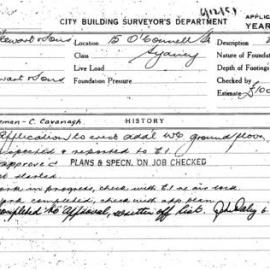 4/12/51
CITY BUILDING SURVEYOR'S DEPARTMENT APPLIC
YEAR
Stewart & Sons Location 15 O'Connell St Description
Class Sydney Nature of Founda
Live Load Depth of Footing
& Sons Foundation Pressure Checked by
Estimated £100
C. Cavanagh HISTORY
Application to erect addl WC ground floor
Inspected & reported to
approved PLANS & SPECN. ON JOB CHECKED
not started
Work in progress, check with
Work completed, check with app plan
Completed to approval, written off list. John Daley